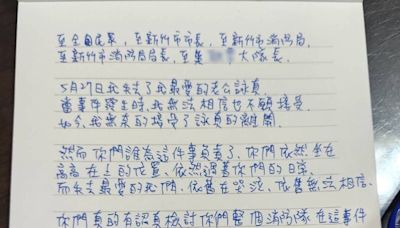 至全國民眾,至新竹市市長,至新竹市消防局,
至新竹市消防局局長,至 大隊長。
5月27日我失去了我最愛的老公詠真,
當事件發生時,我無法相信也不願接受,
如今,我無奈的接受了詠真的離開。
然而你們誰為這件事負責了,你們依然坐在
高高在上的位置,依然過著你們的日常,
而失去最愛的我們,依舊在哭泣,依舊無法相信。
你們真的有認真檢討你們整個消防隊在這事件